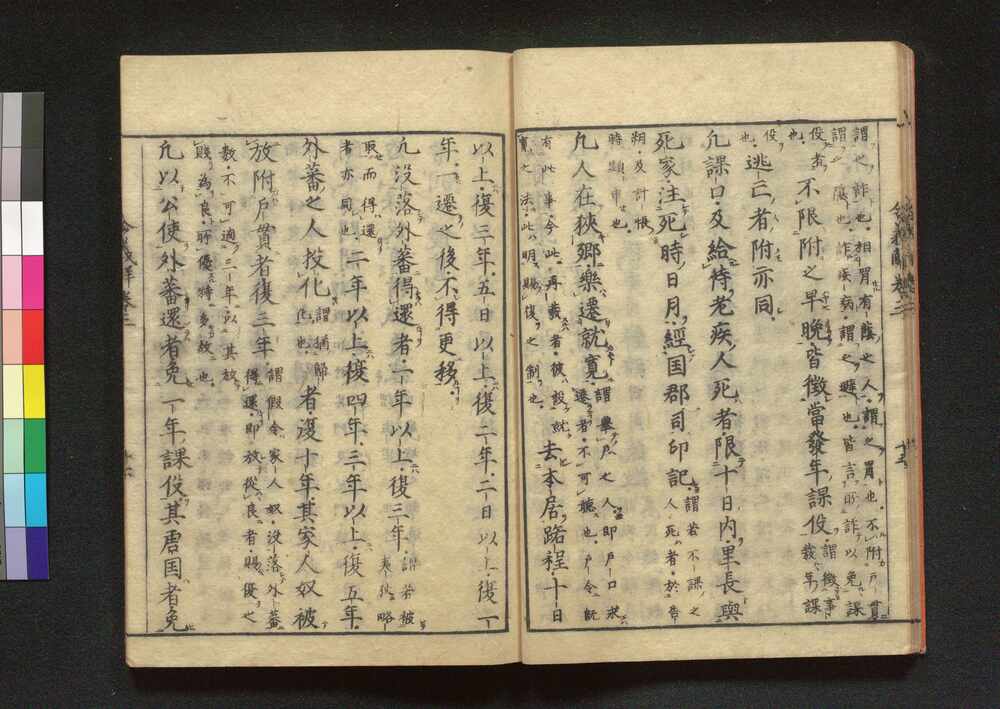 謂之詐也相冒有蔭之人謂之冒也不附戸貫
謂之隠也詐疾病謂之避也皆言所詐以免課
役者不限附之早晩皆徴当發年課役謂徴事
也
役
也逃亡者附亦同
凡課口及給侍老疾人死者限十日内里長與
死家注死時日月經国郡司印記謂若不課之
人死者於告
朔及計帳
時顕申也
凡人在狹郷樂遷就寛謂舉戸之人即戸口求
遷者不可聴也戸令既
有此事今此再載者彼設就
寛之法此明賜復之制也去本居路程十日
以上復三年五日以上復二年二日以上復一
年一遷之後不得更移
凡没落外蕃得還者一年以上復三年謂若被
夷狄略
取而得還
者亦同也二年以上復四年三年以上復五年
外蕃之人投化謂猶歸
化也者復十年其家人奴被
放附戸貫者復三年謂假令家人奴没落外蕃
得還即放從良者賜優之
數不可適三年以其放
賤為良所優特多故也
凡以公使外蕃還者免一年課役其唐国者免
令義解卷三